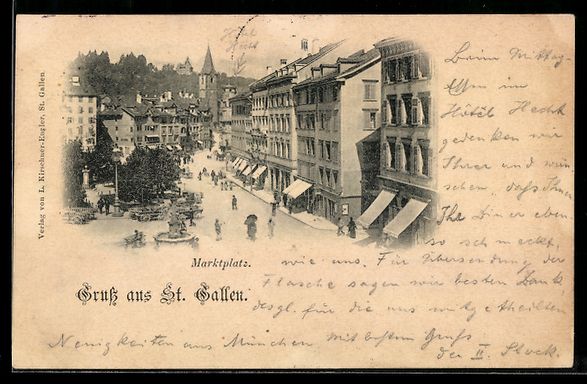 Verlag von L. Kirschner-Engler, St. Gallen.
Hotel
Hecht
Marktplatz.
Gruß aus St. Gallen.
Beim Mittag-
Essen im
Hôtel Hecht
gedenken wir
Ihrer und wün
schen, daß Ihnen
Ihr Diner eben
so schmeckt,
wie uns. Für Übersendung der
Flasche sagen wir besten Dank
desgl. für die uns mitgetheilten
Neuigkeiten aus München. Mit bestem Gruß
der II. Stock.